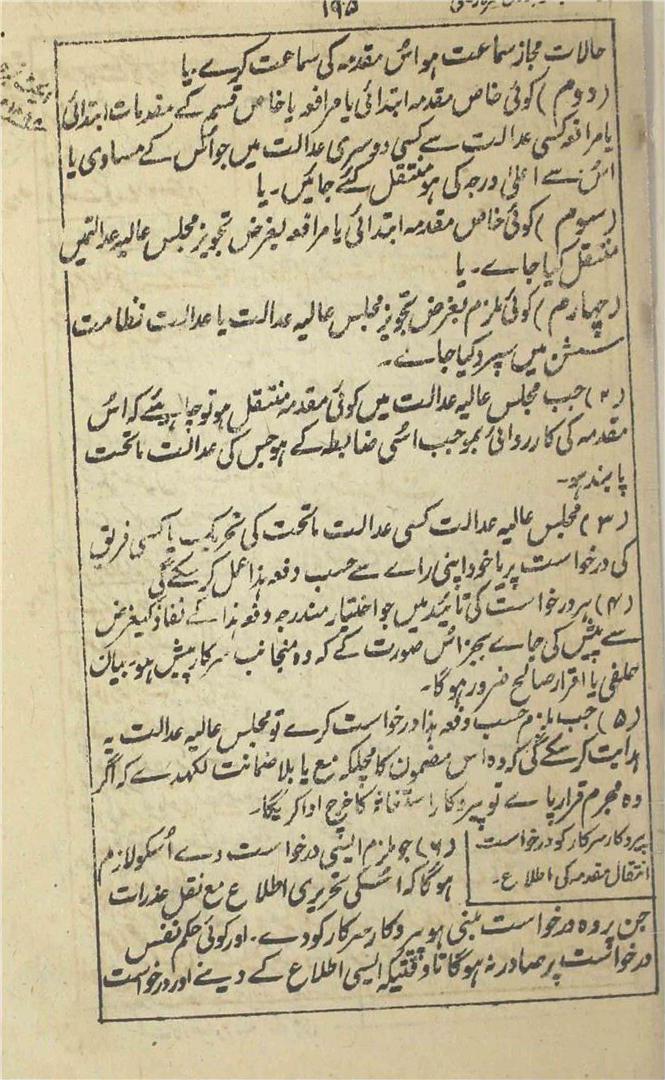 ۱۹۵
حالات مجاز سماعت ہو اُس مقدمہ کی سماعت کرے۔ یا
(دوم) کوئی خاص مقدمہ ابتدائی یا مرافعہ یا خاص قسم کے مقدمات ابتدائی
یا مرافعہ کسی عدالت سے کسی دوسری عدالت میں جو اُس کے مساوی یا
اُس سے اعلیٰ درجہ کی ہو منتقل کئے جائیں۔ یا
(سوم) کوئی خاص مقدمہ ابتدائی یا مرافعہ بغرض تجویز مجلس عالیہ عدالتمیں
منتقل کیا جاے۔ یا
(چہارم) کوئی ملزم بغرض تجویز مجلس عالیہ عدالت یا عدالت نظامت
سشن میں سپرد کیا جاے۔
(۲) جب مجلس عالیہ عدالت میں کوئی مقدمہ منتقل ہو تو چاہیئے کہ اُس
مقدمہ کی کارروائی بموجب اُسی ضابطہ کے ہو جس کی عدالت ماتحت
پابند ہو۔
(۳) مجلس عالیہ عدالت کسی عدالت ماتحت کی تحریک یا کسی فریق
کی درخواست پر یا خود اپنی راے سے حسب دفعہ ہذا عمل کر سکے گی
(۴) ہر درخواست کی تائید میں جو اختیار مندرجہ دفعہ ہذا کے نفاذ کیغرض
سے پیش کی جاے بجز اُس صورت کے کہ وہ منجانب سرکار پیش ہو۔ بیان
حلفی یا اقرار صالح ضرور ہوگا۔
(۵) جب ملزم حسب دفعہ ہذا درخواست کرے تو مجلس عالیہ عدالت یہ
ہدایت کر سکے گی کہ وہ اس مضمون کا مچلکہ مع یا بلا ضمانت لکھدے کہ اگر
وہ مجرم قرار پاے تو پیروکار استغاثہ کا خرچ ادا کریگا۔
پیروکار سرکار کو درخواست
انتقال مقدمہ کی اطلاع۔
(۶) جو ملزم ایسی درخواست دے اُسکو لازم
ہوگا کہ اُسکی تحریری اطلاع مع نقل عذرات
جن پر وہ درخواست مبنی ہو پیروکار سرکار کو دے۔ اور کوئی حکم نفس
درخواست پر صادر نہ ہوگا تا وقتیکہ ایسی اطلاع کے دینے اور درخواست